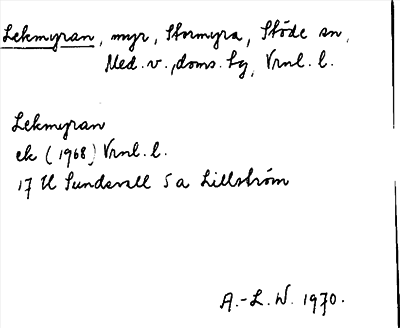 Lekmyran, myr, Stormyra, Stöde sn,
Med. v., doms. bg, Vrnl. l.
Lekmyran
ek (1968) Vrnl. l.
17 H Sundsvall 5 a Lillström
A.-L. W. 1970.